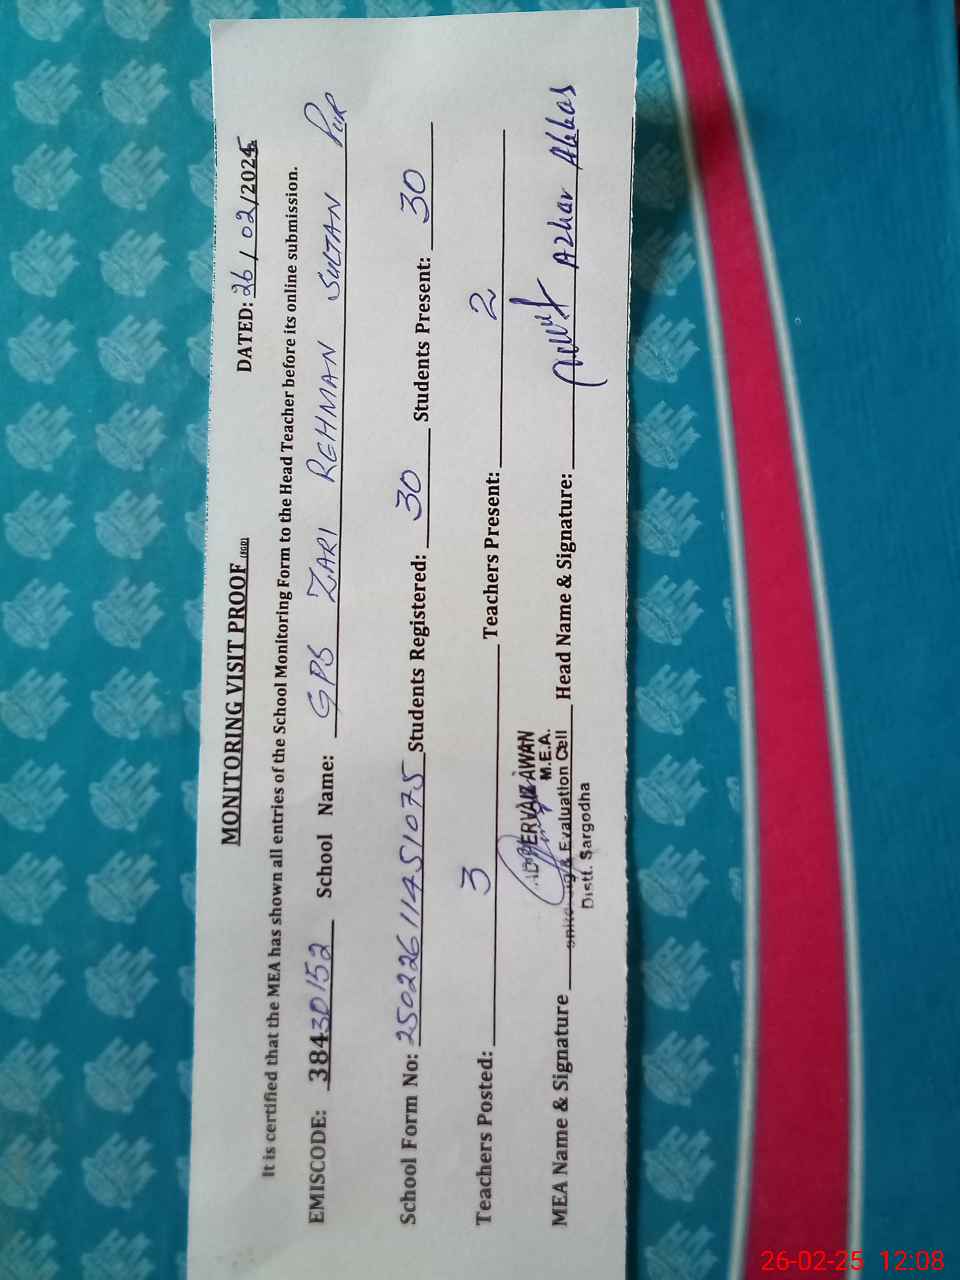 MONITORING VISIT PROOF (SGD)
DATED: 26/02/2025
It is certified that the MEA has shown all entries of the School Monitoring Form to the Head Teacher before its online submission.
EMISCODE: 38430152 School Name: GPS ZARI REHMAN SULTAN PUR
School Form No: 25022611451075 Students Registered: 30 Students Present: 30
Teachers Posted: 3 Teachers Present: 2
PERVAIZ AWAN
M.E.A.
MEA Name & Signature Head Name & Signature: Azhar Abbas
& Evaluation Cell
Distt. Sargodha
26-02-25 12:08